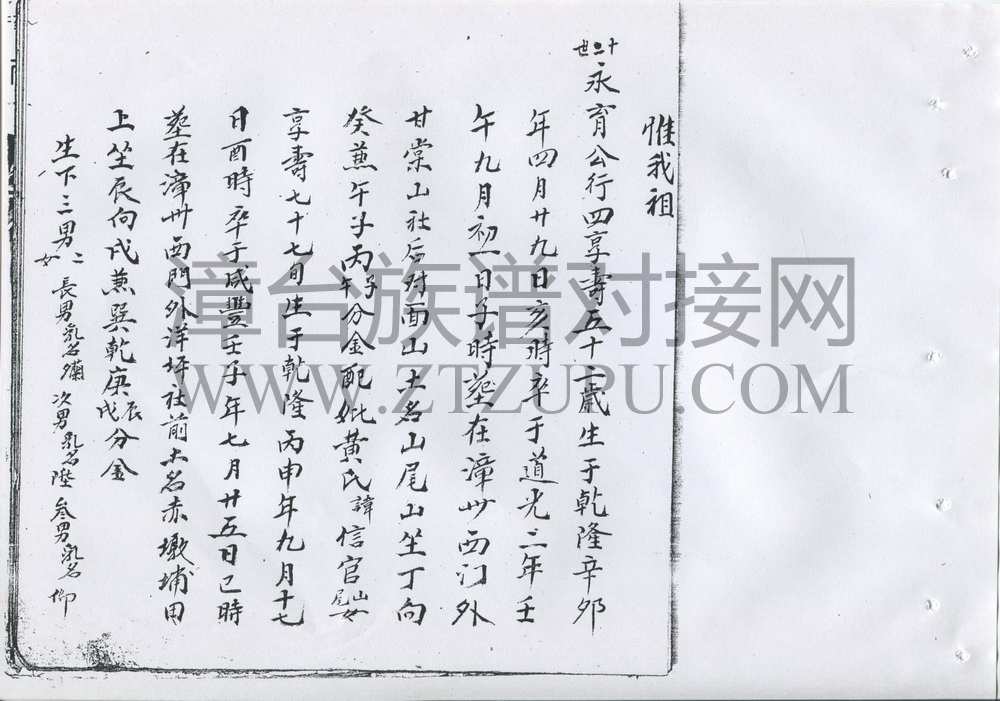 惟我祖
十二世 永育公行四享壽五十二歲生于乾隆辛卯
年四月廿九日亥時卒于道光二年壬
午九月初一日子時塟在漳州西门外
甘棠山社后对面山土名山尾山坐丁向
癸兼午子丙午子分金配妣黃氏諱信官山尾女
享壽七十七旬生于乾隆丙申年九月十七
日酉時卒于咸豐壬子年七月廿五日巳時
塟在漳州西門外洋坪社前土名赤墩埔田
上坐辰向戌兼巽乾庚辰戌分金
生下三男二女 長男乳名 次男乳名陞 叁男乳名仰
漳台族谱对接网
WWW.ZTZUPU.COM